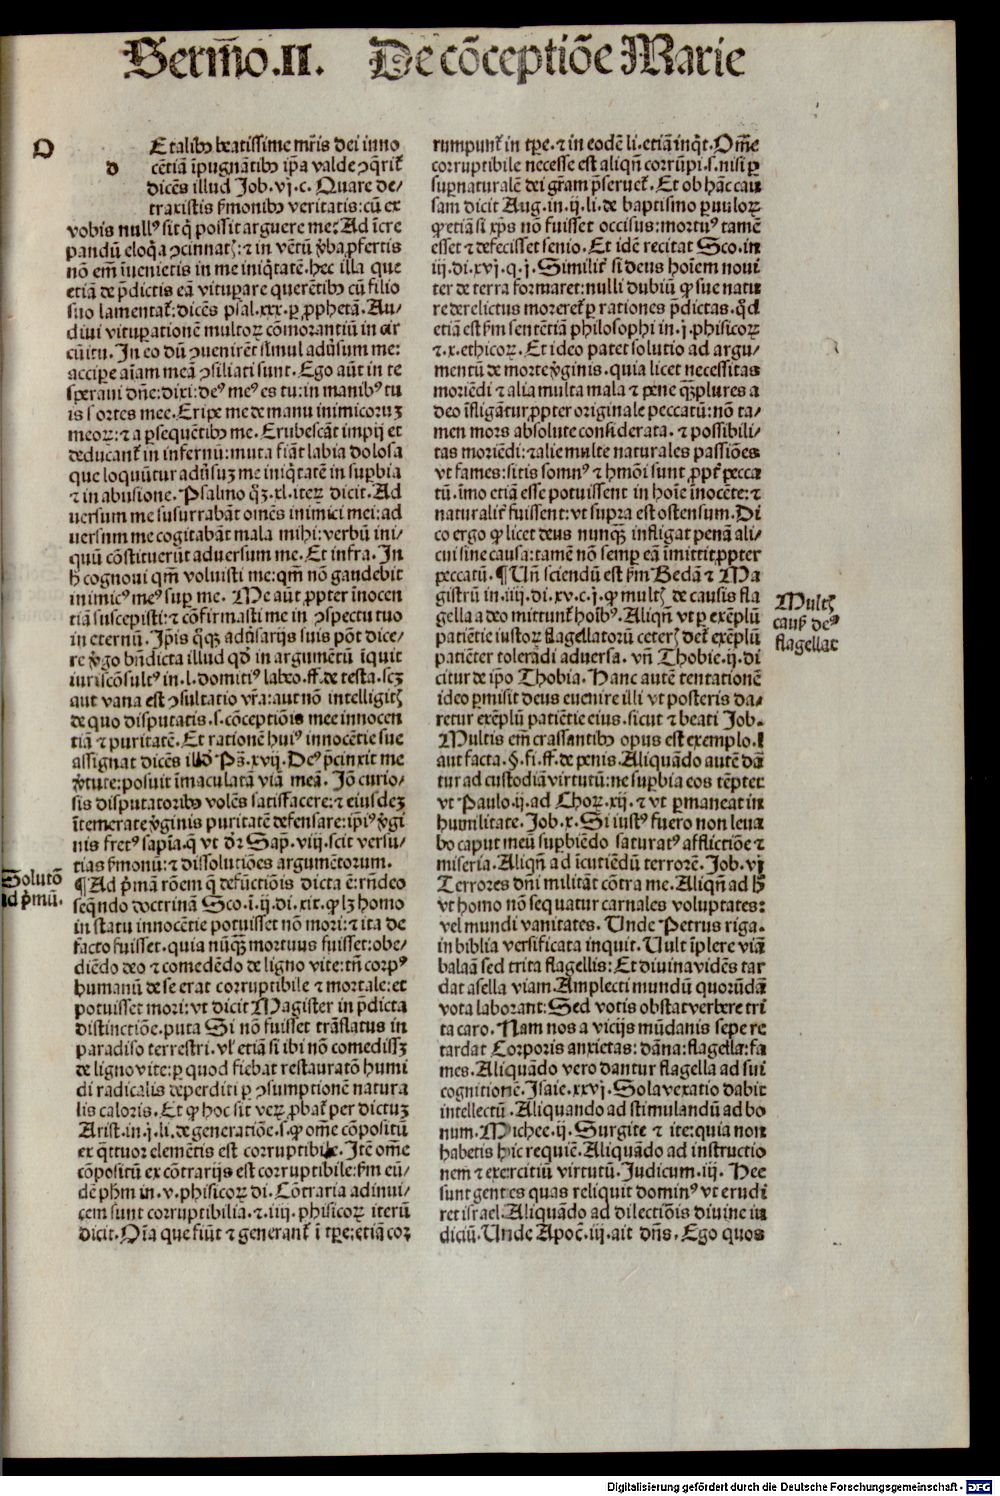 Sermo.II. De cōceptiōe Marie
O
d
Et alibꝫ beatissime mr̄is dei inno
cētiā īpugnātibꝫ ip̄a valde ꝯq̄rit̄
dicēs illud Job. vj. c. Quare de/
traxistis ẜmonibꝫ veritatis: cū ex
vobis nullꝰ sit q̇ possit arguere me: Ad īcre
pandū eloq̇a ꝯcinnatꝭ: ⁊ in vētū v̄ba ꝓfertis
nō em̄ īuenietis in me iniq̇tatē. hec illa que
etiā de p̄dictis eā vituꝑare querētibꝫ cū filio
suo lamentat̄: dicēs psal. xxx. ꝑ ꝓphetā. Au/
diui vituꝑationē multoꝝ cōmorantiū in cir
cūitu. In eo dū ꝯuenirēt simul adūsum me:
accipe aīam meā ꝯsiliati sunt. Ego aūt in te
speraui dn̄e: dixi: deꝰ meꝰ es tu: in manibꝰ tu
is sortes mee. Eripe me de manu inimicoruꝫ
meoꝝ: ⁊ a ꝑsequētibꝫ me. Erubescāt impij et
deducant̄ in infernū: muta fiāt labia dolosa
que loquūtur adūsuꝫ me iniq̇tatē in suꝑbia
⁊ in abusione. Psalmo q̇ꝫ. xl. iteꝝ dicit. Ad
uersum me susurrabāt omēs inimici mei: ad
uersum me cogitabāt mala mihi: verbū ini/
quū cōstituerūt aduersum me. Et infra. In
ħ cognoui qm̄ voluisti me: qm̄ nō gaudebit
inimicꝰ meꝰ suꝑ me. Me aūt ꝓpter inocen
tiā suscepisti: ⁊ cōfirmasti me in ꝯspectu tuo
in eternū. Ip̄is q̇ꝫ adūsarijs suis pōt dice/
re v̄go bn̄dicta illud qď in argumētū īquit
iuriscōsultꝰ in. l. domitiꝰ labeo. ff. de testa. scꝫ
aut vana est ꝯsultatio vr̄a: aut nō intelligitꝭ
de quo disputatis. s. cōceptiōis mee innocen
tiā ⁊ puritatē. Et rationē huiꝰ innocētie sue
assignat dicēs illď Ps̄. xvij. Deꝰ p̄cinxit me
v̄tute: posuit īmaculatā viā meā. Jō curio/
sis disputatoribꝫ volēs satisfacere: ⁊ eiusdeꝫ
ītemerate v̄ginis puritatē defensare: ip̄iꝰ v̄gi
nis fretꝰ sapīa. q̄ vt dr̄ Sap̄. viij. scit versu/
tias ẜmonū: ⁊ dissolutiōes argumētorum.
Solutō
ad p̄mū.
¶Ad p̄mā rōem q̄ defūctiōis dicta ē: rn̄deo
seq̄ndo doctrinā Sco. ī. ij. di. xix. ꝙ lꝫ homo
in statu innocētie potuisset nō mori: ⁊ ita de
facto fuisset. quia nūq̄ꝫ mortuus fuisset: obe/
diēdo deo ⁊ comedēdo de ligno vite: tn̄ corpꝰ
humanū de se erat corruptibile ⁊ mortale: et
potuisset mori: vt dicit Magister in p̄dicta
distinctiōe. puta Si nō fuisset trāslatus in
paradiso terrestri. vl̄ etiā si ibi nō comedissꝫ
de ligno vite: ꝑ quod fiebat restauratō humi
di radicalis deperditi ꝑ ꝯsumptionē natura
lis caloris. Et ꝙ hoc sit veꝝ ꝓbat̄ per dictuꝫ
Arist. in. j. li. de generatiōe. s. ꝙ om̄e cōpositū
ex q̄ttuor elemētis est corruptibile. Itē om̄e
cōpositū ex cōtrarijs est corruptibile: ẜm eū/
dē ph̄m in. v. phisicoꝝ di. Cōtraria adinui/
cem sunt corruptibilia. ⁊. iiij. phisicoꝝ iterū
dicit. Oīa que fiūt ⁊ generant̄ ī tꝑe: etiā coꝛ
rumpunt̄ in tꝑe. ⁊ in eodē li. etiā inq̇t. Om̄e
corruptibile necesse est aliqn̄ corrūpi. s. nisi ꝑ
suꝑnaturalē dei gr̄am p̄seruet̄. Et ob hāc cau
sam dicit Aug. in. ij. li. de baptismo ꝑuuloꝝ
ꝙ etiā si xp̄s nō fuisset occisus: mortuꝰ tamē
esset ⁊ defecisset senio. Et idē recitat Sco. in
iij. di. xvj. q. j. Similit̄ si deus hoīem noui
ter de terra formaret: nulli dubiū ꝙ sue natu
re derelictus moreret̄ ꝑ rationes p̄dictas. q̇d
etiā est ẜm sentētiā philosophi in. j. phisicoꝝ
⁊. x. ethicoꝝ. Et ideo patet solutio ad argu/
mentū de morte v̄ginis. quia licet necessitas
moriēdi ⁊ alia multa mala ⁊ pene q̄ꝫplures a
deo īfligātur ꝓpter originale peccatū: nō ta/
men mors absolute considerata. ⁊ possibili/
tas moriēdi: ⁊ alie multe naturales passiōes
vt fames: sitis somnꝰ ⁊ hmōi sunt ꝓpt̄ pecca
tū. īmo etiā esse potuissent in hoīe īnocēte: ⁊
naturalit̄ fuissent: vt supra est ostensum. Di
co ergo ꝙ licet deus nunq̄ꝫ infligat penā ali/
cui sine causa: tamē nō semꝑ eā īmittit ꝓpter
peccatū. ¶Un̄ sciendū est ẜm Bedā ⁊ Ma
gistrū in. iiij. di. xv. c. j. ꝙ multꝭ de causis fla
gella a deo mittunt̄ hoībꝰ. Aliqn̄ vt ꝑ exēplū
Multꝭ
caus̄ deꝰ
flagellat
patiētie iustoꝝ flagellatorū ceterꝭ det̄ exēplū
patiēter tolerādi aduersa. vn̄ Thobie. ij. di
citur de ip̄o Thobia. Hanc autē tentationē
ideo ꝑmisit deus euenire illi vt posteris da/
retur exēplū patiētie eius. sicut ⁊ beati Job.
Multis em̄ crassantibꝫ opus est exemplo. l
aut facta. §. fi. ff. de penis. Aliquādo autē dā
tur ad custodiā virtutū: ne suꝑbia eos tēpter
vt Paulo. ij. ad Choꝝ. xij. ⁊ vt ꝑmaneat in
humilitate. Job. x. Si iustꝰ fuero non leua
bo caput meū suꝑbiēdo saturatꝰ afflictiōe ⁊
miseria. Aliqn̄ ad īcutiēdū terrorē. Job. vj
Terrores dn̄i militāt cōtra me. Aliqn̄ ad ħ
vt homo nō sequatur carnales voluptates:
vel mundi vanitates. Unde Petrus riga.
in biblia versificata inquit. Uult īplere viā
balaā sed trita flagellis: Et diuina vidēs tar
dat asella viam. Amplecti mundū quorūdā
vota laborant: Sed votis obstat verbere tri
ta caro. Nam nos a vicijs mūdanis sepe re
tardat Corporis anxietas: dāna: flagella: fa
mes. Aliquādo vero dantur flagella ad sui
cognitionē. Isaie. xxvj. Sola vexatio dabit
intellectū. Aliquando ad stimulandū ad bo
num. Michee. ij. Surgite ⁊ ite: quia non
habetis hic requiē. Aliquādo ad instructio
nem ⁊ exercitiū virtutū. Judicum. iij. Hee
sunt gentes quas reliquit dominꝰ vt erudi
ret israel. Aliquādo ad dilectiōis diuine iu
diciū. Unde Apoc̄. iij. ait dn̄s. Ego quos
Digitalisierung gefördert durch die Deutsche Forschungsgemeinschaft - DFG